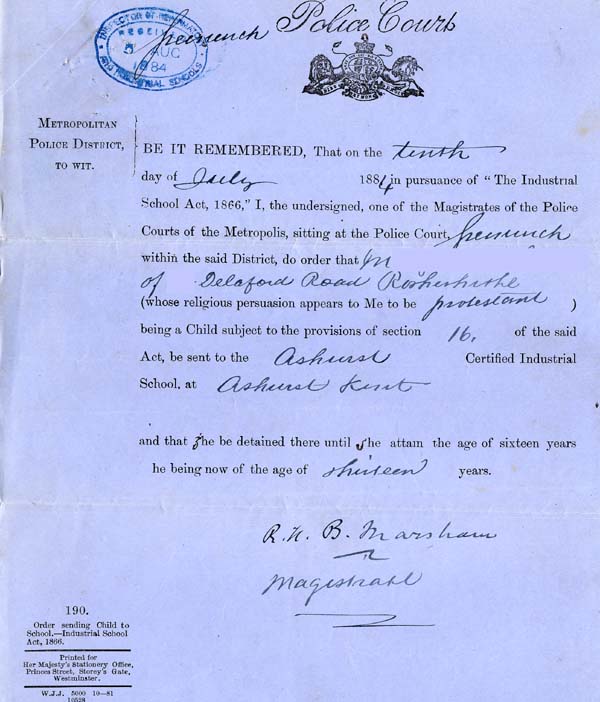 INSPECTOR OF REFORMATORY
RECEIVED
AUG
1884
AND INDUSTRIAL SCHOOLS
Greenwich Police Court
METROPOLITAN
POLICE DISTRICT,
TO WIT.
BE IT REMEMBERED, That on the tenth
day of July 1884 in pursuance of “The Industrial
School Act, 1866,” I, the undersigned, one of the Magistrates of the Police
Courts of the Metropolis, sitting at the Police Court, Greenwich
within the said District, do order that
of Delaford Road Rotherhithe
(whose religious persuasion appears to Me to be protestant )
being a Child subject to the provisions of section 16. of the said
Act, be sent to the Ashurst Certified Industrial
School, at Ashurst Kent
and that she be detained there until she attain the age of sixteen years
he being now of the age of thirteen years.
R. H. B. Marsham
Magistrate
190.
Order sending Child to
School.—Industrial School
Act, 1866.
Printed for
Her Majesty's Stationery Office,
Princes Street, Storey's Gate,
Westminster.
W.J.J. 5000 10—81
10528